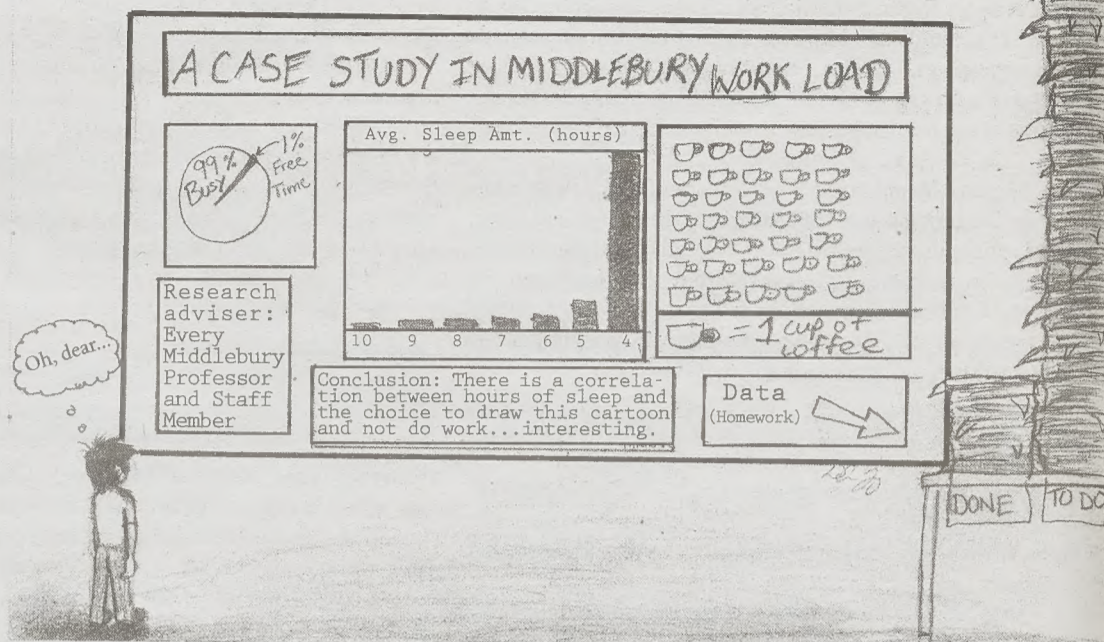 A CASE STUDY IN MIDDLEBURY WORK LOAD
99%
Busy
1%
Free
Time
Avg. Sleep Amt. (hours)
10 9 8 7 6 5 4
= 1 cup of
coffee
Research
adviser:
Every
Middlebury
Professor
and Staff
Member
Conclusion: There is a correla-
tion between hours of sleep and
the choice to draw this cartoon
and not do work...interesting.
Data
(Homework)
Oh, dear...
DONE
TO DO